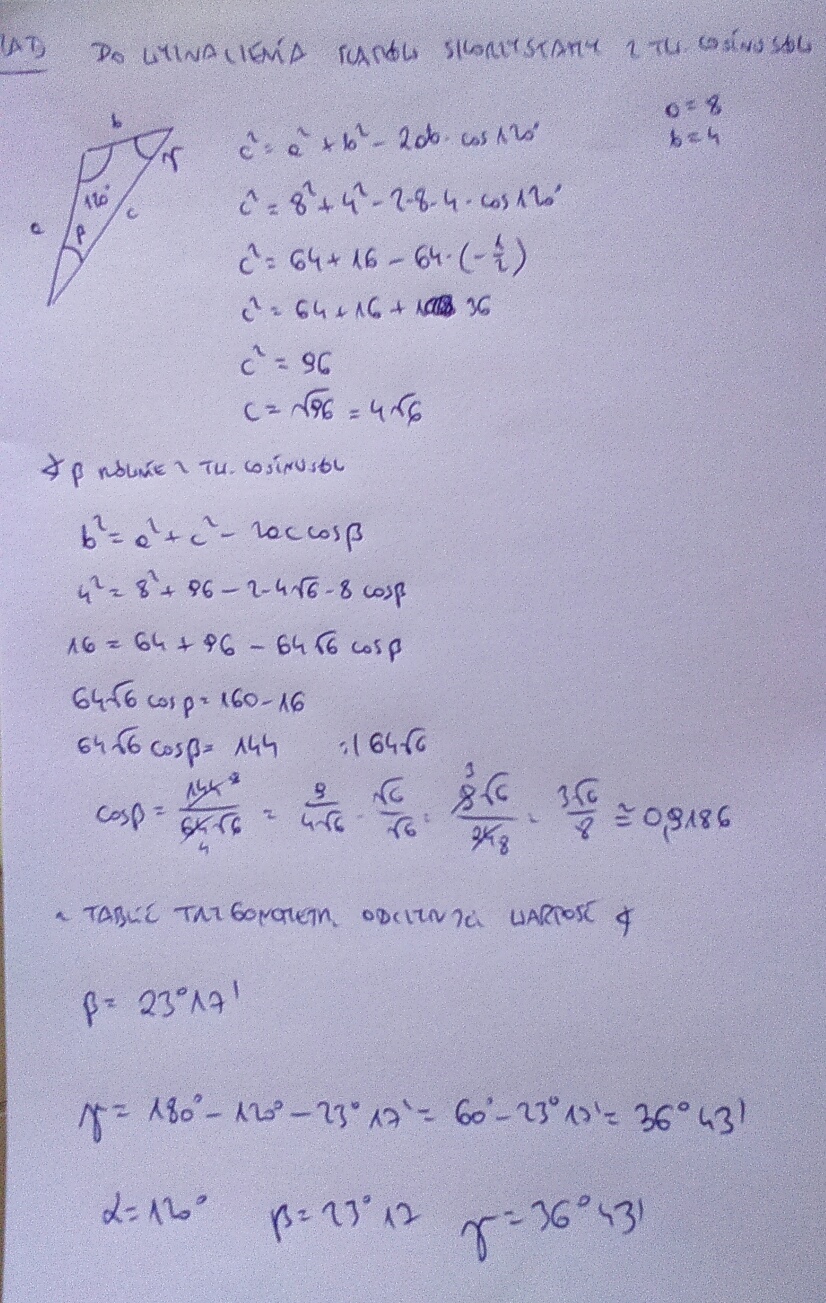 DO WYZNACZENIA SKORZYSTAMY Z TW. COSINUSÓW
a = 8
b = 4
b
γ
120°
a
β
c
c² = a² + b² - 2ab · cos 120°
c² = 8² + 4² - 2·8·4 · cos 120°
c² = 64 + 16 - 64 · (-1/2)
c² = 64 + 16 + 36
c² = 96
c = √96 = 4√6
∢ β RÓWNIEŻ Z TW. COSINUSÓW
b² = a² + c² - 2ac cos β
4² = 8² + 96 - 2·4√6·8 cos β
16 = 64 + 96 - 64√6 cos β
64√6 cos β = 160 - 16
64√6 cos β = 144 :| 64√6
cos β = 144/64√6 = 9/4√6 · √6/√6 = 9√6/24 = 3√6/8 ≅ 0,9186
Z TABLIC WARTOŚĆ ∢
β = 23°17'
γ = 180° - 120° - 23°17' = 60° - 23°17' = 36°43'
α = 120° β = 23°17 γ = 36°43'